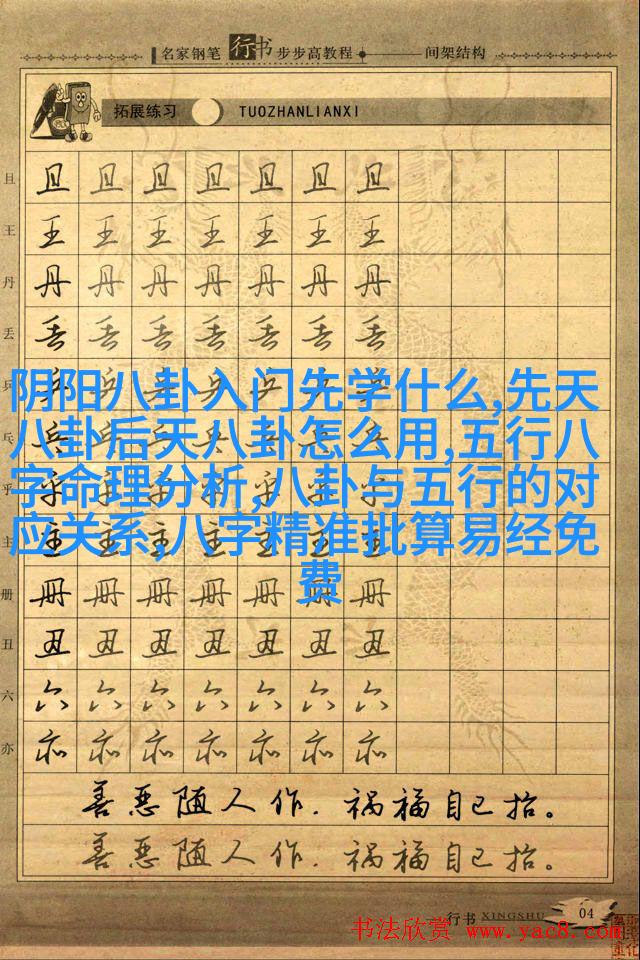 名家钢笔行书步步高教程 间架结构
拓展练习 TUOZHANLIANXI
且 且 且 且 且 且 且 且
王 王 王 王 王 王 王 王
丹 丹 丹 丹 丹 丹 丹 丹
丢 丢 丢 丢 丢 丢 丢 丢
兵
阴阳八卦入门先学什么,先天
八卦后天八卦怎么用,五行八
字命理分析,八卦与五行的对
应关系,八字精准批算易经免
费
乓
乎
主
册 册 册 册 册 册 册 册
丑 丑 丑 丑 丑 丑 丑 丑
六 六 六 六 六 六 六 六
亦 亦 亦 亦 亦 亦 亦 亦
善恶随人作.祸福自己招。
善恶随人作.祸福自己招。
行书 XINGSHU 04
书法欣赏 www.yac8.com